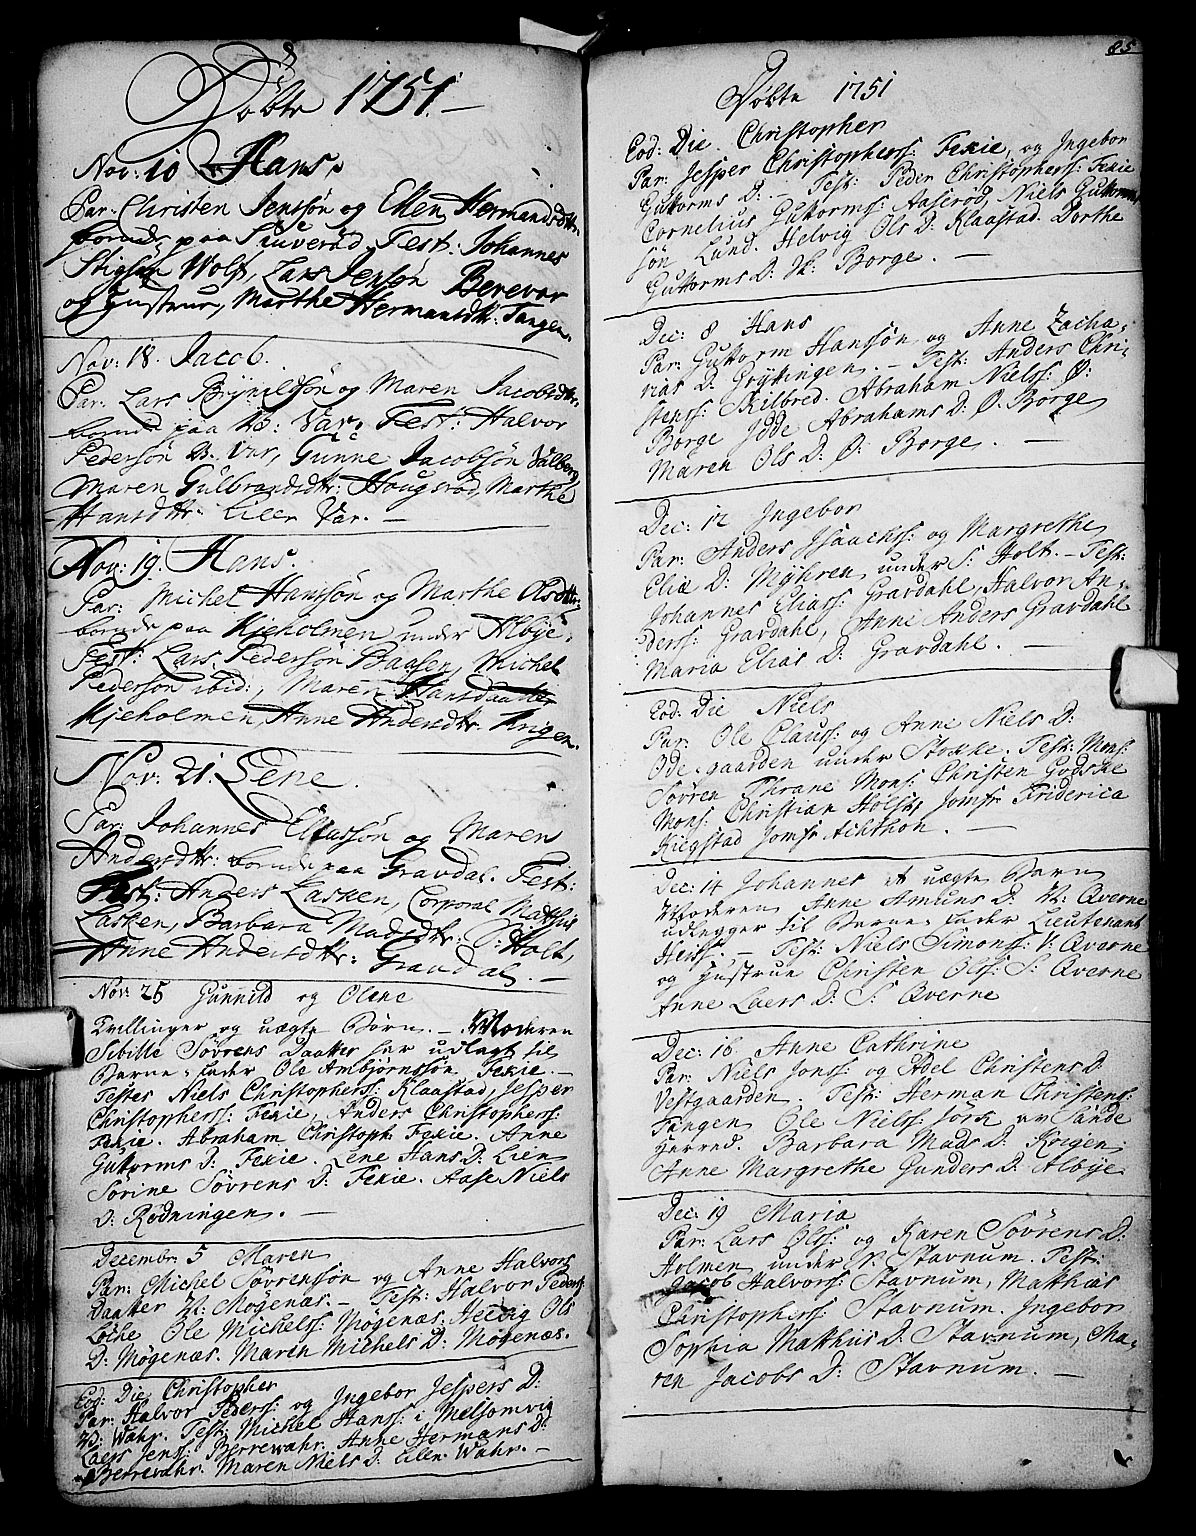 Döbte 1751.
Nov: 10 Hans.
Par: Christen Jenssön og Ellen Hermandsdttr:
boende paa Test: Johannes
Stigsen Wolf, Lars Jensön Berevar
og Hustrue, Marthe Hermansdtr: Tangen.
Nov: 18. Jacob.
Par: Lars Brynildssön og Maren Jacobsdttr:
boende paa N: Var. Test: Halvor
Pedersön N. Var, Gunne Jacobsön Valberg,
Maren Gulbrandsdtr: Hougsröd, Marthe
Hansdttr: Lille Var. —
Nov: 19. Hans.
Par: Michel Hanssön og Marthe Olsdttr:
boende paa Kjeholmen under Albye.
Test: Lars Pedersön Baasen, Michel
Pedersön ibid:, Maren Hansdaatter
Kjeholmen, Anne Andersdtr: Krigen.
Nov: 21. Lene.
Par: Johannes Eliassön og Maren
Andersdtr: boende paa Gravdal. Test:
Test: Anders Lasken, Corporal Matthis
Lasken, Barbara Madsdtr: S: Holt,
Anne Andersdtr: Gravdal. —
Nov: 25 Gunnild og Olene
Tvillinger og uægte Börn. — Moderen
Sibille Sövrens Daatter har udlagt til
Barne-fader Ole Ambjörnssön Fexie. —
Testes Niels Christophers: Klaastad, Jesper
Christophers: Fexie, Anders Christophers:
Fexie. Abraham Christoph: Fexie. Anne
Guttorms D: Fexie. Lene Hans D: Lien
Sörine Sövrens D: Fexie. Aase Niels
D: Rödningen. —
Decembr: 5 Maren
Par: Michel Sövrensön og Anne Halvors
Daatter N: Mögenæs. — Test: Halvor Peders:
Löche Ole Michelss: Mögenæs. Hedvig Ols
D: Mögenæs. Maren Michels D: Mögenæs.
Eod: Die Christopher
Par: Halvor Pederss: og Ingebor Jespers D:
N: Wahr. Test: Michel Hanss: i Melsomvig
Laers Jenss: Berrewahr. Anne Hermans D:
Berrewahr. Maren Niels D: Lille Wahr. —
85
Döbte 1751
Eod: Die. Christopher
Par: Jesper Christopherss: Fexie, og Ingebor
Guttorms D: — Test: Peder Christopherss: Fexie
Cornelius Guttorms: Aaseröd, Niels Guttorms
sön Lund. Helvig Ols D: Klaastad. Dorthe
Guttorms D: Borge. —
Dec: 8 Hans
Par: Guttorm Hansön og Anne Zacha-
rias D: Gryttingen. — Test: Anders Chri-
stenss: Kilbred. Abraham Nielss: Ø:
Borge Idde Abrahams D: Ø. Borge
Maren Ols D: Ø: Borge. —
Dec: 12 Ingebor
Par: Anders Isaachss: og Margrethe
Eliæ D: Myhren under S: Holt. — Test:
Johannes Eliass: Gravdahl, Halvor An-
derss: Gravdahl, Anne Anders Gravdahl
Maria Elias D: Gravdahl. —
Eod: Die Niels
Par: Ole Clauss: og Anne Niels D:
Öde-gaarden under Stokke. Test: Mons:
Sövren Thrane Mons: Christen Godske
Mons: Christian Holst Jomfr: Friderica
Riegstad Jomfr: Achthon. —
Dec: 14 Johannes et uægte Barn
Moderen Anne Amunds D: N: Qverne
udlegger til Barne-fader Lieutenant
Heiss. — Test: Niels Simonss: V: Qverne
og Hustrue Christen Olss: S: Qverne
Anne Laers D: S: Qverne
Dec: 16 Anne Cathrine
Par: Niels Jonss: og Adel Christens D:
Vestgaarden. Test: Herman Christenss:
Tangen Ole Nielss: av Sande
Herred. Barbara Mads D: Krigen.
Anne Margrethe Gunders D: Albye
Dec: 19 Maria
Par: Lars Olss: og Karen Sövrens D:
Holmen under N: Stavnum. Test:
Jacob Halvorss: Stavnum, Matthias
Christopherss: Stavnum. Ingebor
Sophia Matthis D: Stavnum, Ma-
ren Jacobs D: Stavnum. —